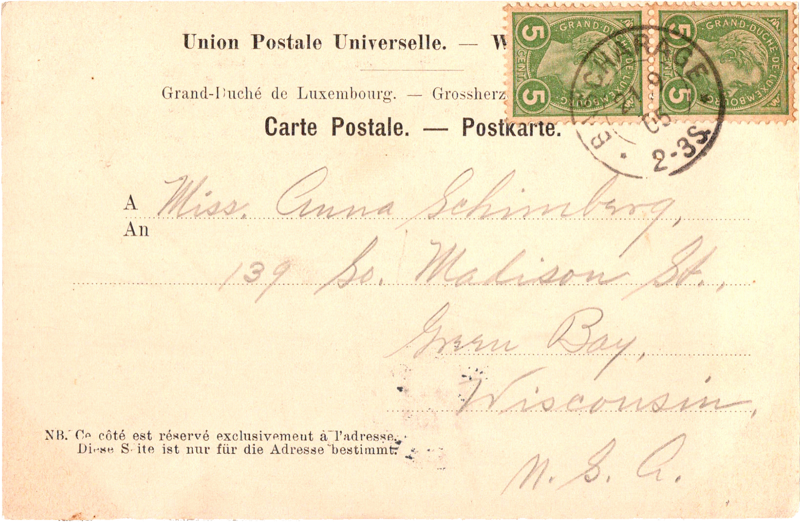 Union Postale Universelle. — W
Grand-Duché de Luxembourg. — Grossherz
Carte Postale. — Postkarte.
5 CENTIMES 5
GRAND-DUCHÉ-DE-LUXEMBOURG
5 5
GRAND-DUCHÉ-DE-LUXEMBOURG
05
2-3S.
A Miss. Anna Schimberg,
An
139 So. Madison St.,
Green Bay,
Wisconsin,
U.S.A.
NB. Ce côté est réservé exclusivement à l'adresse.
Diese Seite ist nur für die Adresse bestimmt.